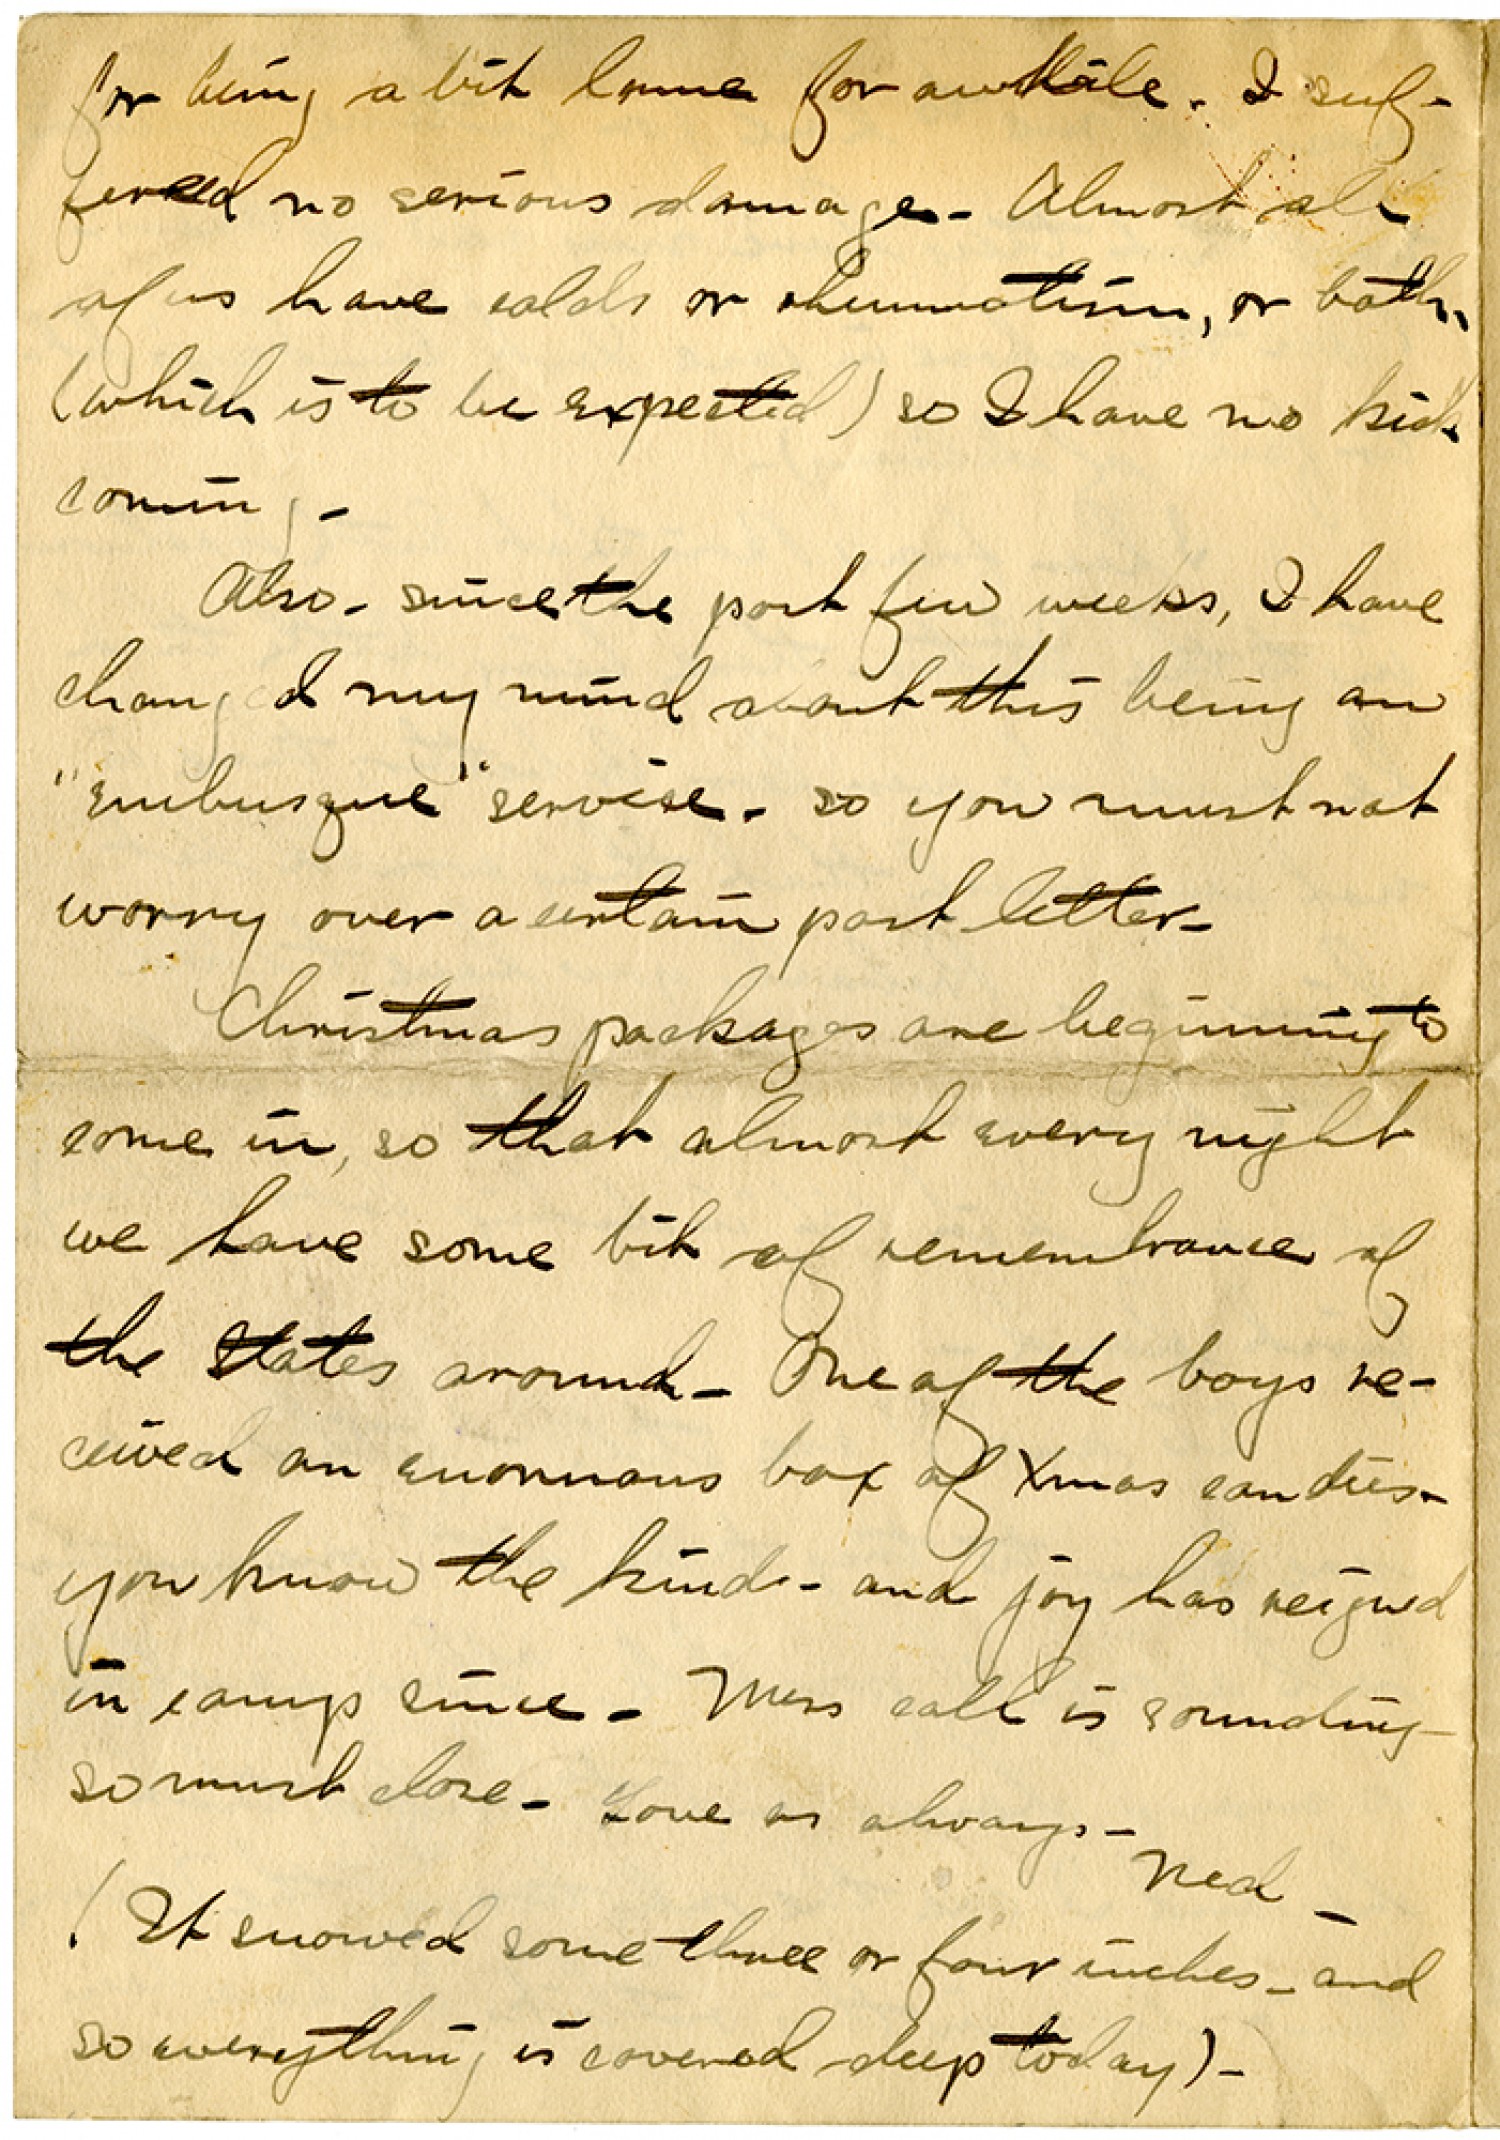 for being a bit lame for awhile. I suf-
fered no serious damage - Almost all
of us have colds or rheumatism, or both,
(which is to be expected) so I have no kick
coming -
Also - since the past few weeks, I have
changed my mind about this being an
"embusque" service - so you must not
worry over a certain past letter -
Christmas packages are beginning to
come in, so that almost every night
we have some bit of remembrance of
the States around - One of the boys re-
ceived an enormous box of Xmas candies -
you know the kind - and joy has reigned
in camp since - Mess call is sounding -
so must close - Love as always -
Ned -
(It snowed some three or four inches - and
so everything is covered deep today) -